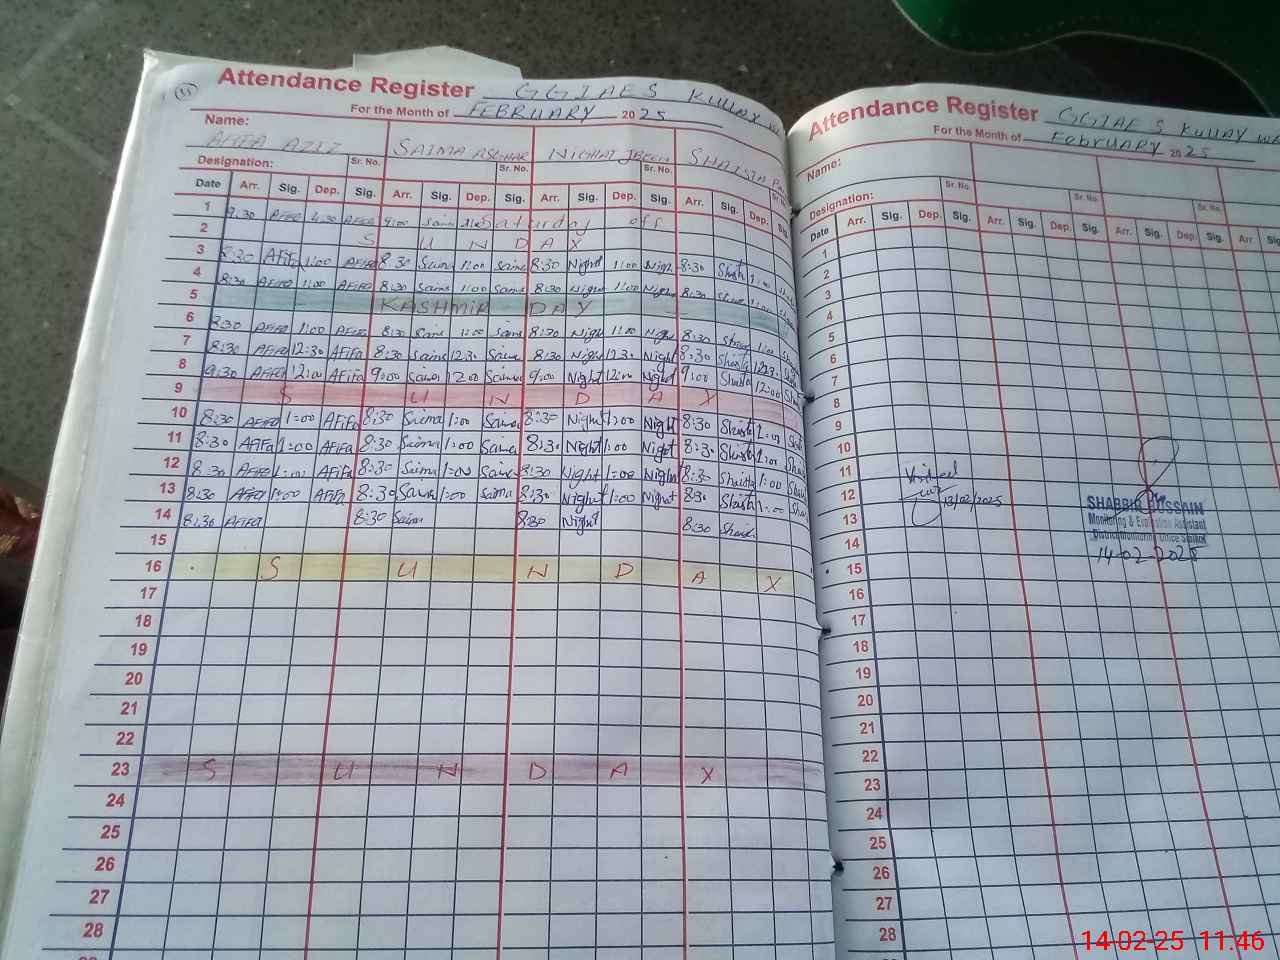 11
Attendance Register GGIAES KULLAY
For the Month of FEBRUARY 2025
Name:
AFIFA AZIZ SAIMA ASGHAR NIGHAT JBEEN SHAISTA
Designation: Sr. No. Sr. No. Sr. No. Sr. No.
Date Arr. Sig. Dep. Sig. Arr. Sig. Dep. Sig. Arr. Sig. Dep. Sig. Arr. Sig. Dep. Sig.
1 9:30 AFIFA AFIFA 9:00 Saim Saturday off
2 S U N D A Y
3 8:30 AFIFA 1:00 AFIFA 8:30 Saima 1:00 Saima 8:30 Night 1:00 Nigh 8:30 Shaista 1:00
4 8:30 AFIFA 1:00 AFIFA 8:30 Saima 1:00 Saima 8:30 Night 1:00 Night 8:30 1:00
5 KASHMIR DAY
6 8:30 AFIFA 1:00 AFIFA 8:30 Saima 1:00 Saima 8:30 Night 1:00 Night 8:30 1:00
7 8:30 AFIFA 12:30 AFIFA 8:30 Saima 12:30 Saima 8:30 Night 12:30 Night 8:30 Shaista 12:30
8 9:30 AFIFA 12:00 AFIFA 9:00 Saima 12:00 Saima 9:00 Night 12:00 Night 9:00 Shaista 12:00 Sha
9 S U N D A Y
10 8:30 AFIFA 1:00 AFIFA 8:30 Saima 1:00 Saima 8:30 Night 1:00 Night 8:30 Shaista 1:00 Sha
11 8:30 AFIFA 1:00 AFIFA 8:30 Saima 1:00 Saima 8:30 Night 1:00 Night 8:30 Shaista 1:00 Sha
12 8:30 AFIFA 1:00 AFIFA 8:30 Saima 1:00 Saima 8:30 Night 1:00 Night 8:30 Shaista 1:00 Sha
13 8:30 AFIFA 1:00 AFIFA 8:30 Saima 1:00 Saima 8:30 Night 1:00 Night 8:30 Shaista 1:00 Sha
14 8:30 AFIFA 8:30 Saima 8:30 Night 8:30 Shaist
15
16 S U N D A Y
17
18
19
20
21
22
23 S U N D A Y
24
25
26
27
28
Attendance Register GGIAES KULLAY
For the Month of February 2025
Name:
Designation: Sr. No. Sr. No. Sr. No.
Date Arr. Sig. Dep. Sig. Arr. Sig. Dep. Sig. Arr. Sig. Dep. Sig. Arr. Sig.
1
2
3
4
5
6
7
8
9
10
11
12
13
14
15
16
17
18
19
20
21
22
23
24
25
26
27
28
Visited
13/02/2025
SHABBIR HUSSAIN
Monitoring & Evaluation Assistant
District Monitoring Office Sialkot
14-02-2025
14-02-25 11.46